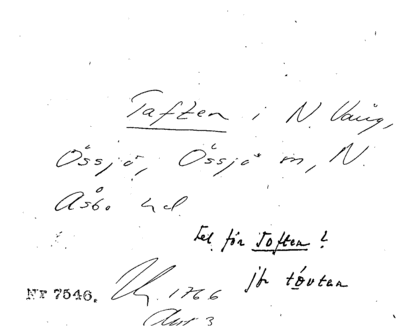 Taften i N. Vång,
Össjö, Össjö sn, N.
Åsbo hd
Fel för Toften?
jfr tóutan
Nr 7546. 1766
Akt 3